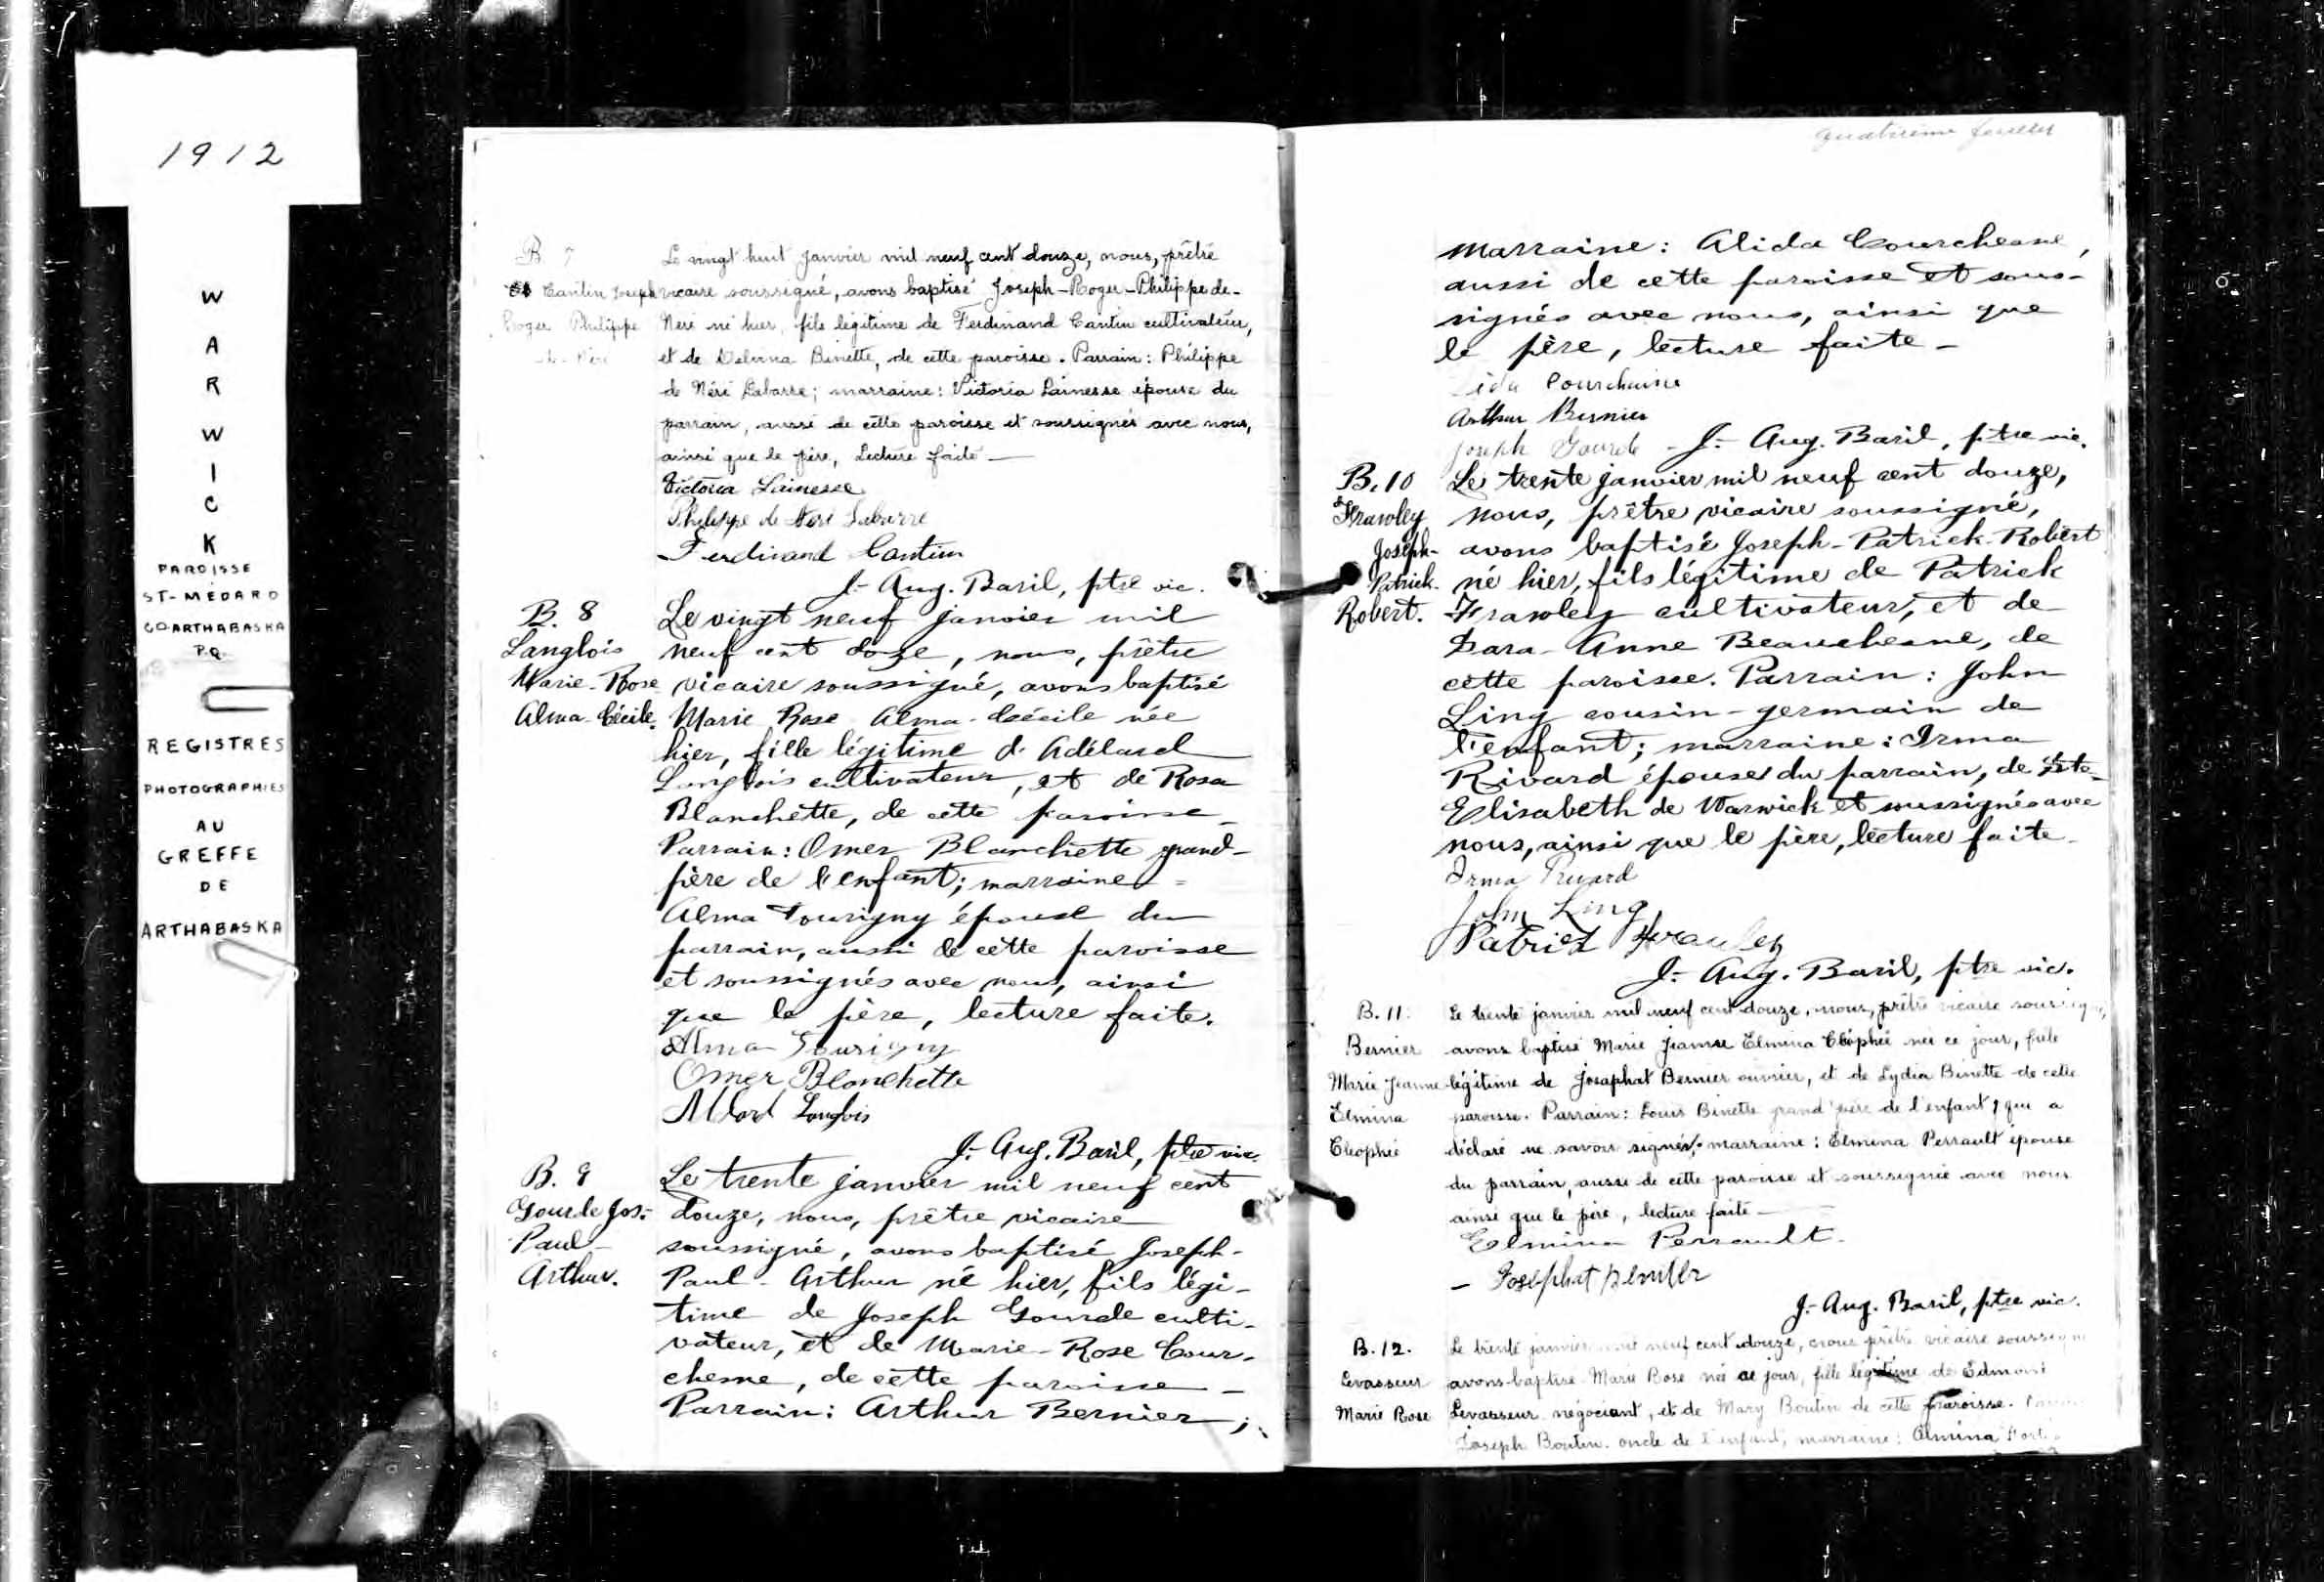 1912
W
A
R
W
I
C
K
PAROISSE
ST-MÉDARD
CO-ARTHABASKA
P.Q.
REGISTRES
PHOTOGRAPHIES
AU
GREFFE
DE
ARTHABASKA
B 7
Cantin Joseph
Roger Philippe
de Néri
Le vingt huit janvier mil neuf cent douze, nous, prêtre
vicaire soussigné, avons baptisé Joseph-Roger-Philippe de-
Neri né hier, fils légitime de Ferdinand Cantin cultivateur,
et de Delvina Binette, de cette paroisse. Parrain: Philippe
de Néri Labarre; marraine: Victoria Lainesse épouse du
parrain, aussi de cette paroisse et soussignés avec nous,
ainsi que le père, Lecture faite —
Victoria Lainesse
Philippe de Neri Labarre
Ferdinand Cantin
J.- Aug. Baril, ptre vic.
B. 8
Langlois
Marie-Rose
Alma-Cécile.
Le vingt neuf janvier mil
neuf cent douze, nous, prêtre
vicaire soussigné, avons baptisé
Marie Rose Alma-Cécile née
hier, fille légitime d' Adélard
Langlois cultivateur, et de Rosa
Blanchette, de cette paroisse –
Parrain: Omer Blanchette grand-
père de l'enfant; marraine =
Alma Tourigny épouse du
parrain, aussi de cette paroisse
et soussignés avec nous, ainsi
que le père, lecture faite.
Alma Tourigny
Omer Blanchette
Langlois
J.- Aug. Baril, ptre vic.
B. 9
Gourde Jos.-
Paul-
Arthur.
Le trente janvier mil neuf cent
douze, nous, prêtre vicaire
soussigné, avons baptisé Joseph-
Paul-Arthur né hier, fils légi-
time de Joseph Gourde culti-
vateur, et de Marie-Rose Cour-
chesne, de cette paroisse –
Parrain: Arthur Bernier;
quatrième feuillet
marraine: Alida Courchesne,
aussi de cette paroisse et sous-
signés avec nous, ainsi que
le père, lecture faite –
Courchaine
Arthur Bernier
Joseph Gourde - J.- Aug. Baril, ptre vic.
B. 10
Frawley
Joseph-
Patrick-
Robert.
Le trente janvier mil neuf cent douze,
nous, prêtre vicaire soussigné,
avons baptisé Joseph-Patrick-Robert
né hier, fils légitime de Patrick
Frawley cultivateur, et de
Sara-Anne Beauchesne, de
cette paroisse. Parrain: John
Ling cousin-germain de
l'enfant; marraine: Irma
Rivard épouse du parrain, de Ste-
Elisabeth de Warwick et soussignés avec
nous, ainsi que le père, lecture faite –
Irma Rivard
John Ling
Patrick Frawley
J.- Aug. Baril, ptre vic.
B. 11.
Bernier
Marie Jeanne
Elmina
Cléophée
Le trente janvier mil neuf cent douze, nous, prêtre vicaire soussigné,
avons baptisé Marie Jeanne Elmina Cléophée née ce jour, fille
légitime de Josaphat Bernier ouvrier, et de Lydia Binette de cette
paroisse. Parrain: Louis Binette grand père de l'enfant, qui a
déclaré ne savoir signer; marraine: Elmina Perrault épouse
du parrain, aussi de cette paroisse et soussignée avec nous
ainsi que le père, lecture faite —
Elmina Perrault
– Josephat Bernier
J.- Aug. Baril, ptre vic.
B. 12.
Levasseur
Marie Rose
Le trente janvier mil neuf cent douze, nous prêtre vicaire soussigné
avons baptisé Marie Rose née ce jour, fille légitime de Edmond
Levasseur négociant, et de Mary Boutin de cette paroisse.
Joseph Boutin oncle de l'enfant; marraine: Almina